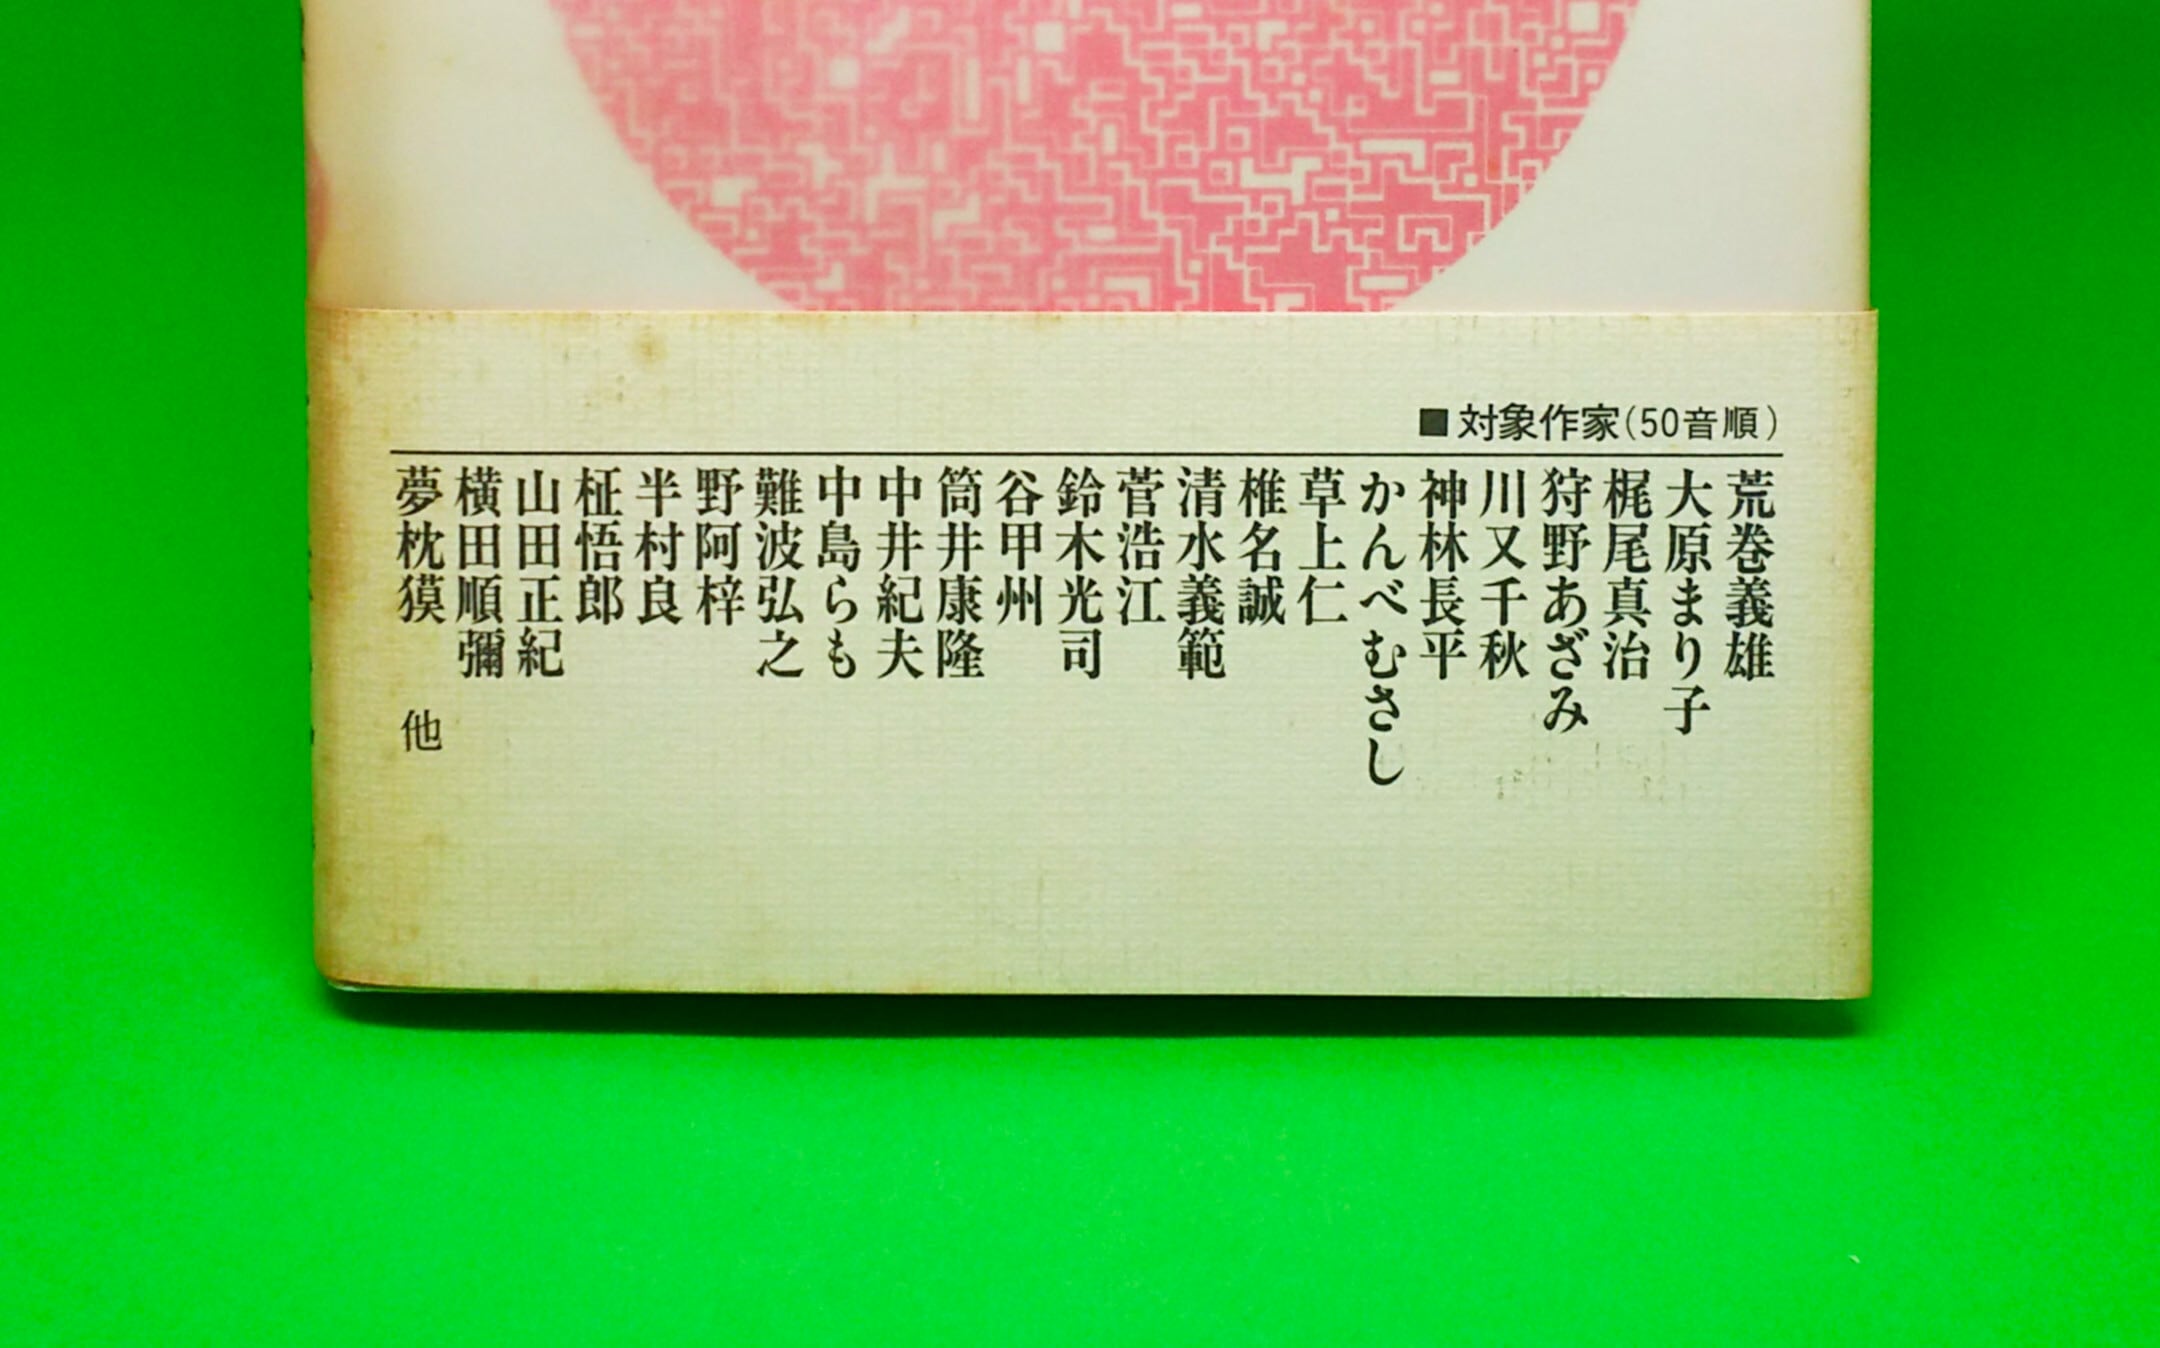 ■対象作家(50音順)
荒巻義雄
大原まり子
梶尾真治
狩野あざみ
川又千秋
神林長平
かんべむさし
草上仁
椎名誠
清水義範
菅浩江
鈴木光司
谷甲州
筒井康隆
中井紀夫
中島らも
難波弘之
野阿梓
半村良
柾悟郎
山田正紀
横田順彌
夢枕獏 他